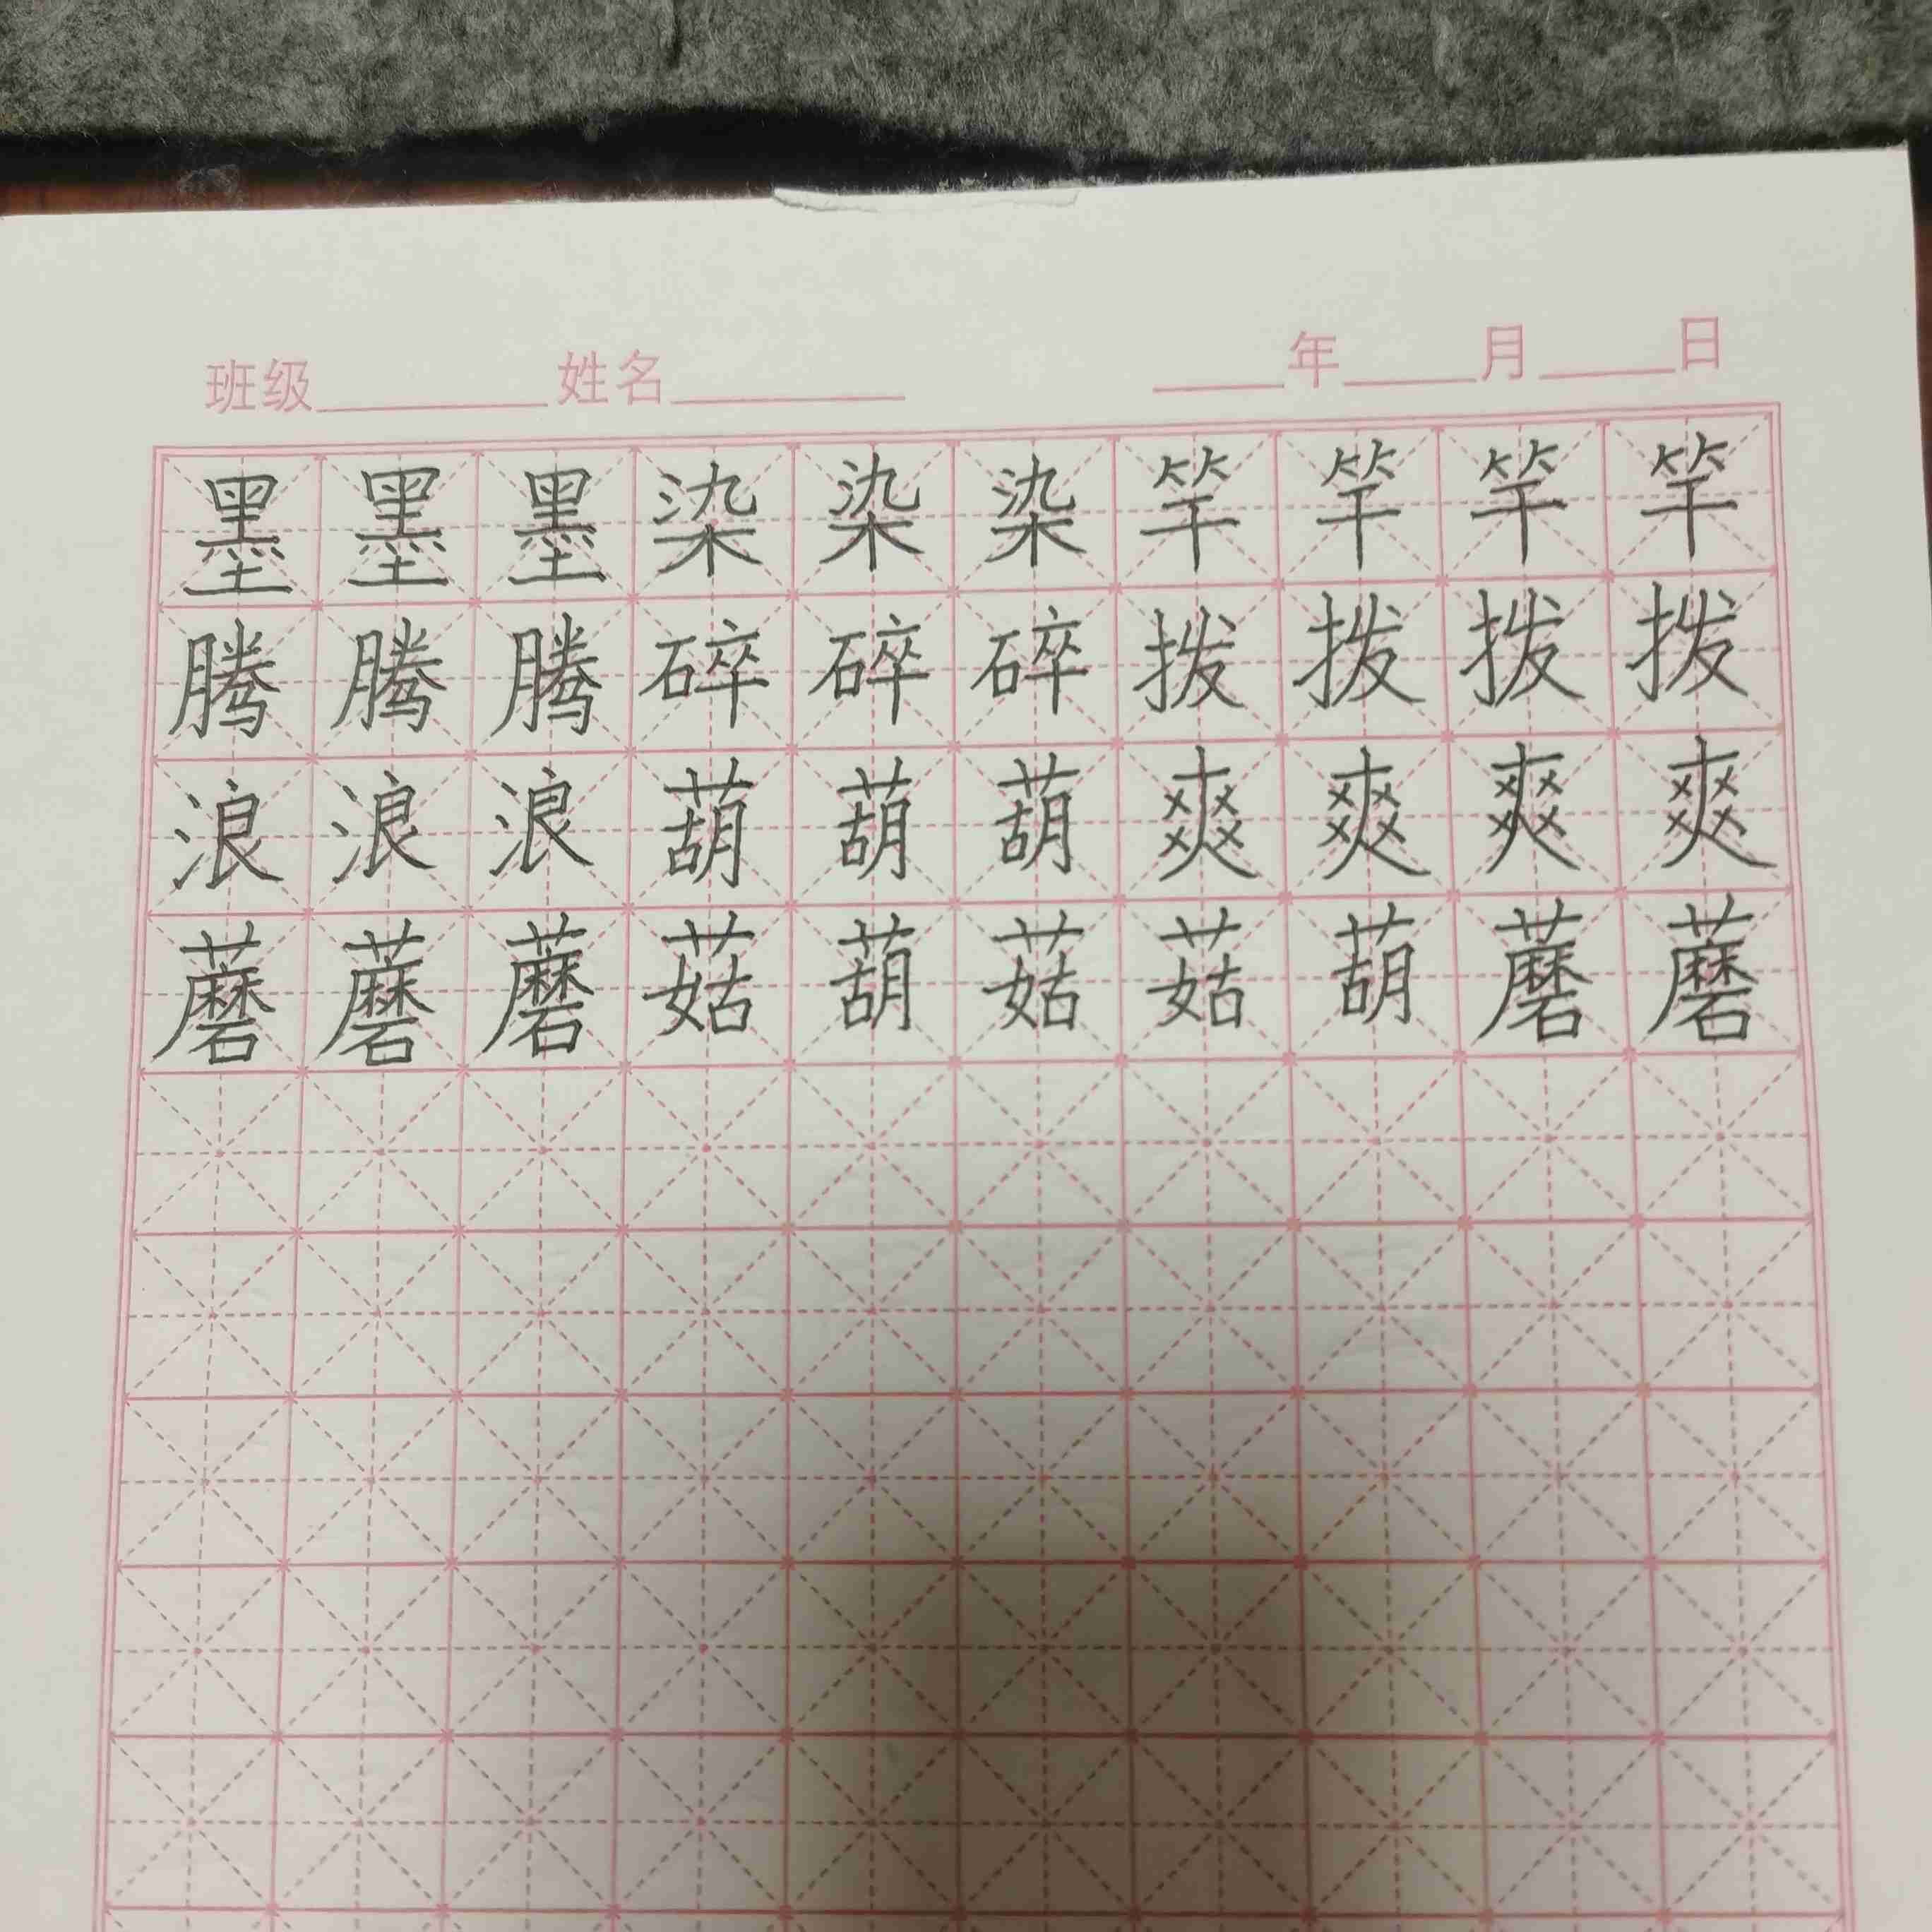 班级 姓名 年 月 日
墨墨墨染染染竿竿竿竿
腾腾腾碎碎碎拨拨拨拨
浪浪浪葫葫葫爽爽爽爽
蘑蘑蘑菇葫菇菇葫蘑蘑